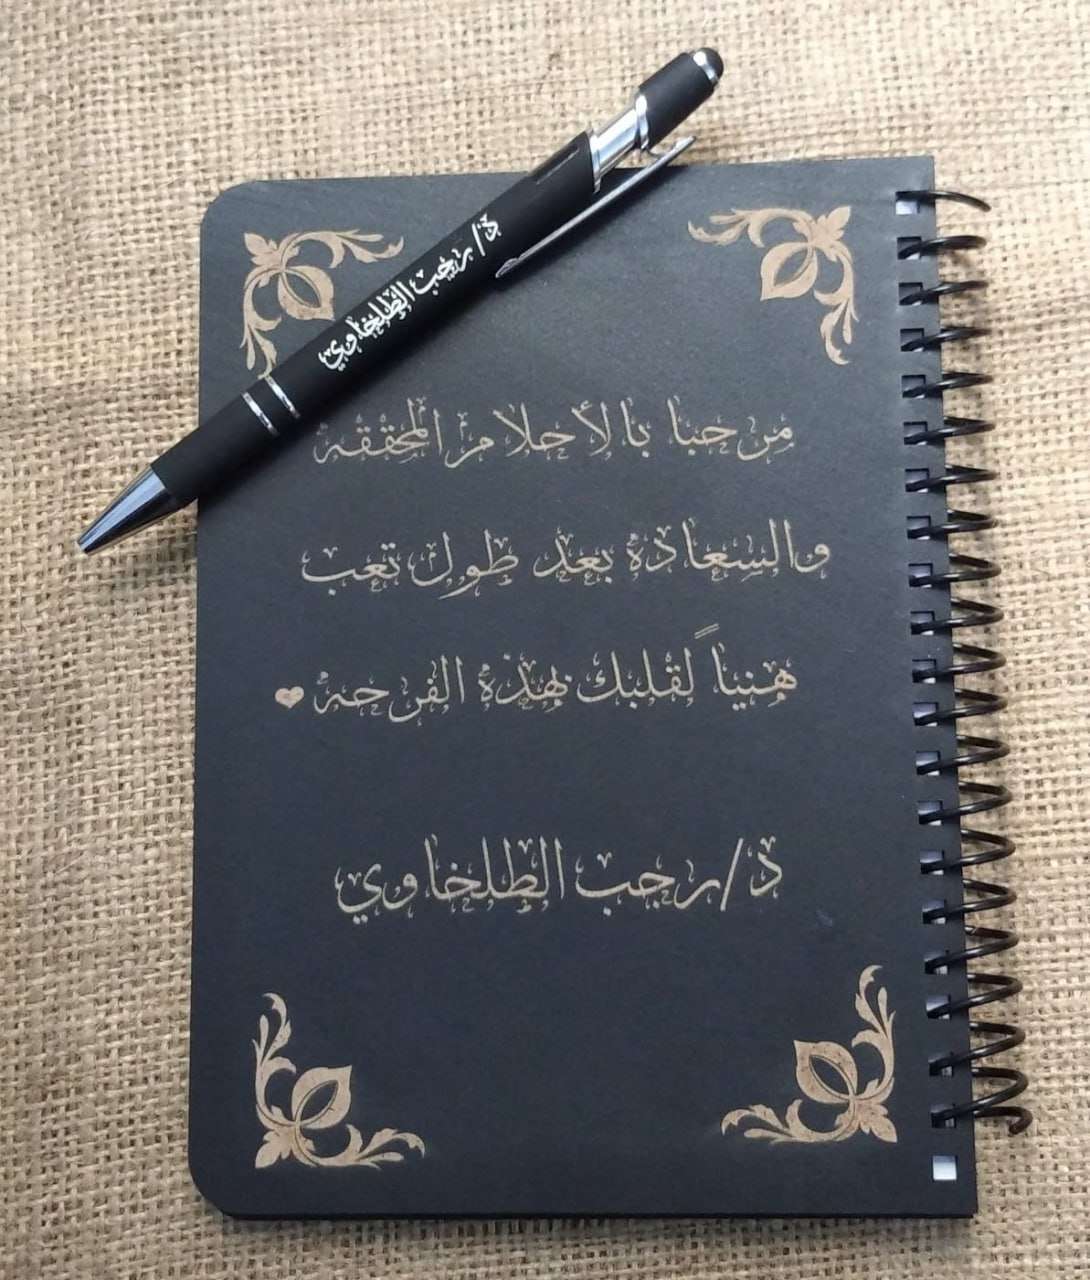 د/ رجب الطلخاوي
مرحبا بالأحلام المحققه
والسعاده بعد طول تعب
هنياً لقلبك بهذه الفرحه ❤
د/رجب الطلخاوي